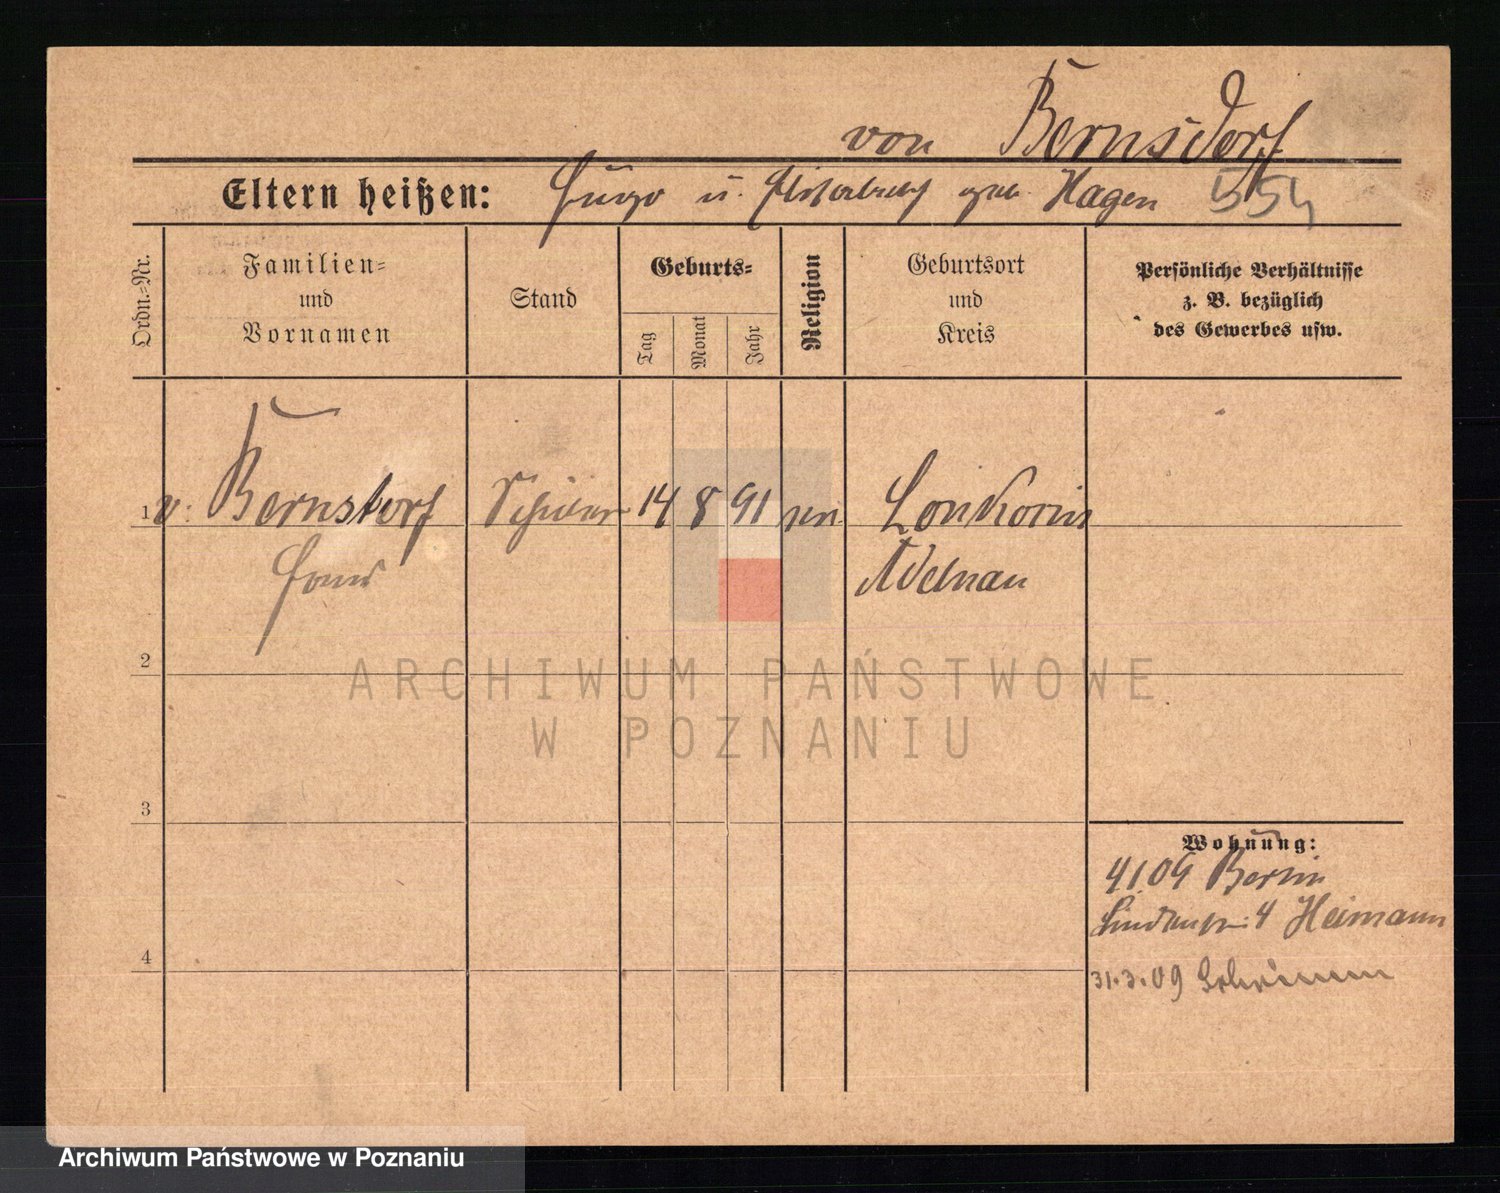 von Bernsdorf
Eltern heißen: Hugo u. Elisabeth geb. Hagen 554
Ordn.=Nr.
Familien=
und
Vornamen
Stand
Geburts=
Tag
Monat
Jahr
Religion
Geburtsort
und
Kreis
Persönliche Verhältnisse
z. B. bezüglich
des Gewerbes usw.
1 v. Bernstorf Schüler 14 8 91
Hans Adelnau
2
ARCHIWUM PAŃSTWOWE
W POZNANIU
3
Wohnung:
4109 Berlin
Lindenstr. 4 Heimann
4
31.3.09 Schrimm
Archiwum Państwowe w Poznaniu